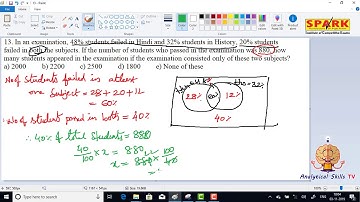 SPARK
13. In an examination, 48% students failed in Hindi and 32% students in History, 20% students
failed in both the subjects. If the number of students who passed in the examination was 880, how
many students appeared in the examination if the examination consisted only of these two subjects?
a) 2000 b) 2200 c) 2500 d) 1800 e) None of these
No of students failed in atleast
one subject = 28 + 20 + 12
= 60%
∴ No of student passed in both = 40%
∴ 40% of total students = 880
40/100 × x = 880
x = 880 × 100/40
=
28%
20%
12%
40%
Analyical Skills TV